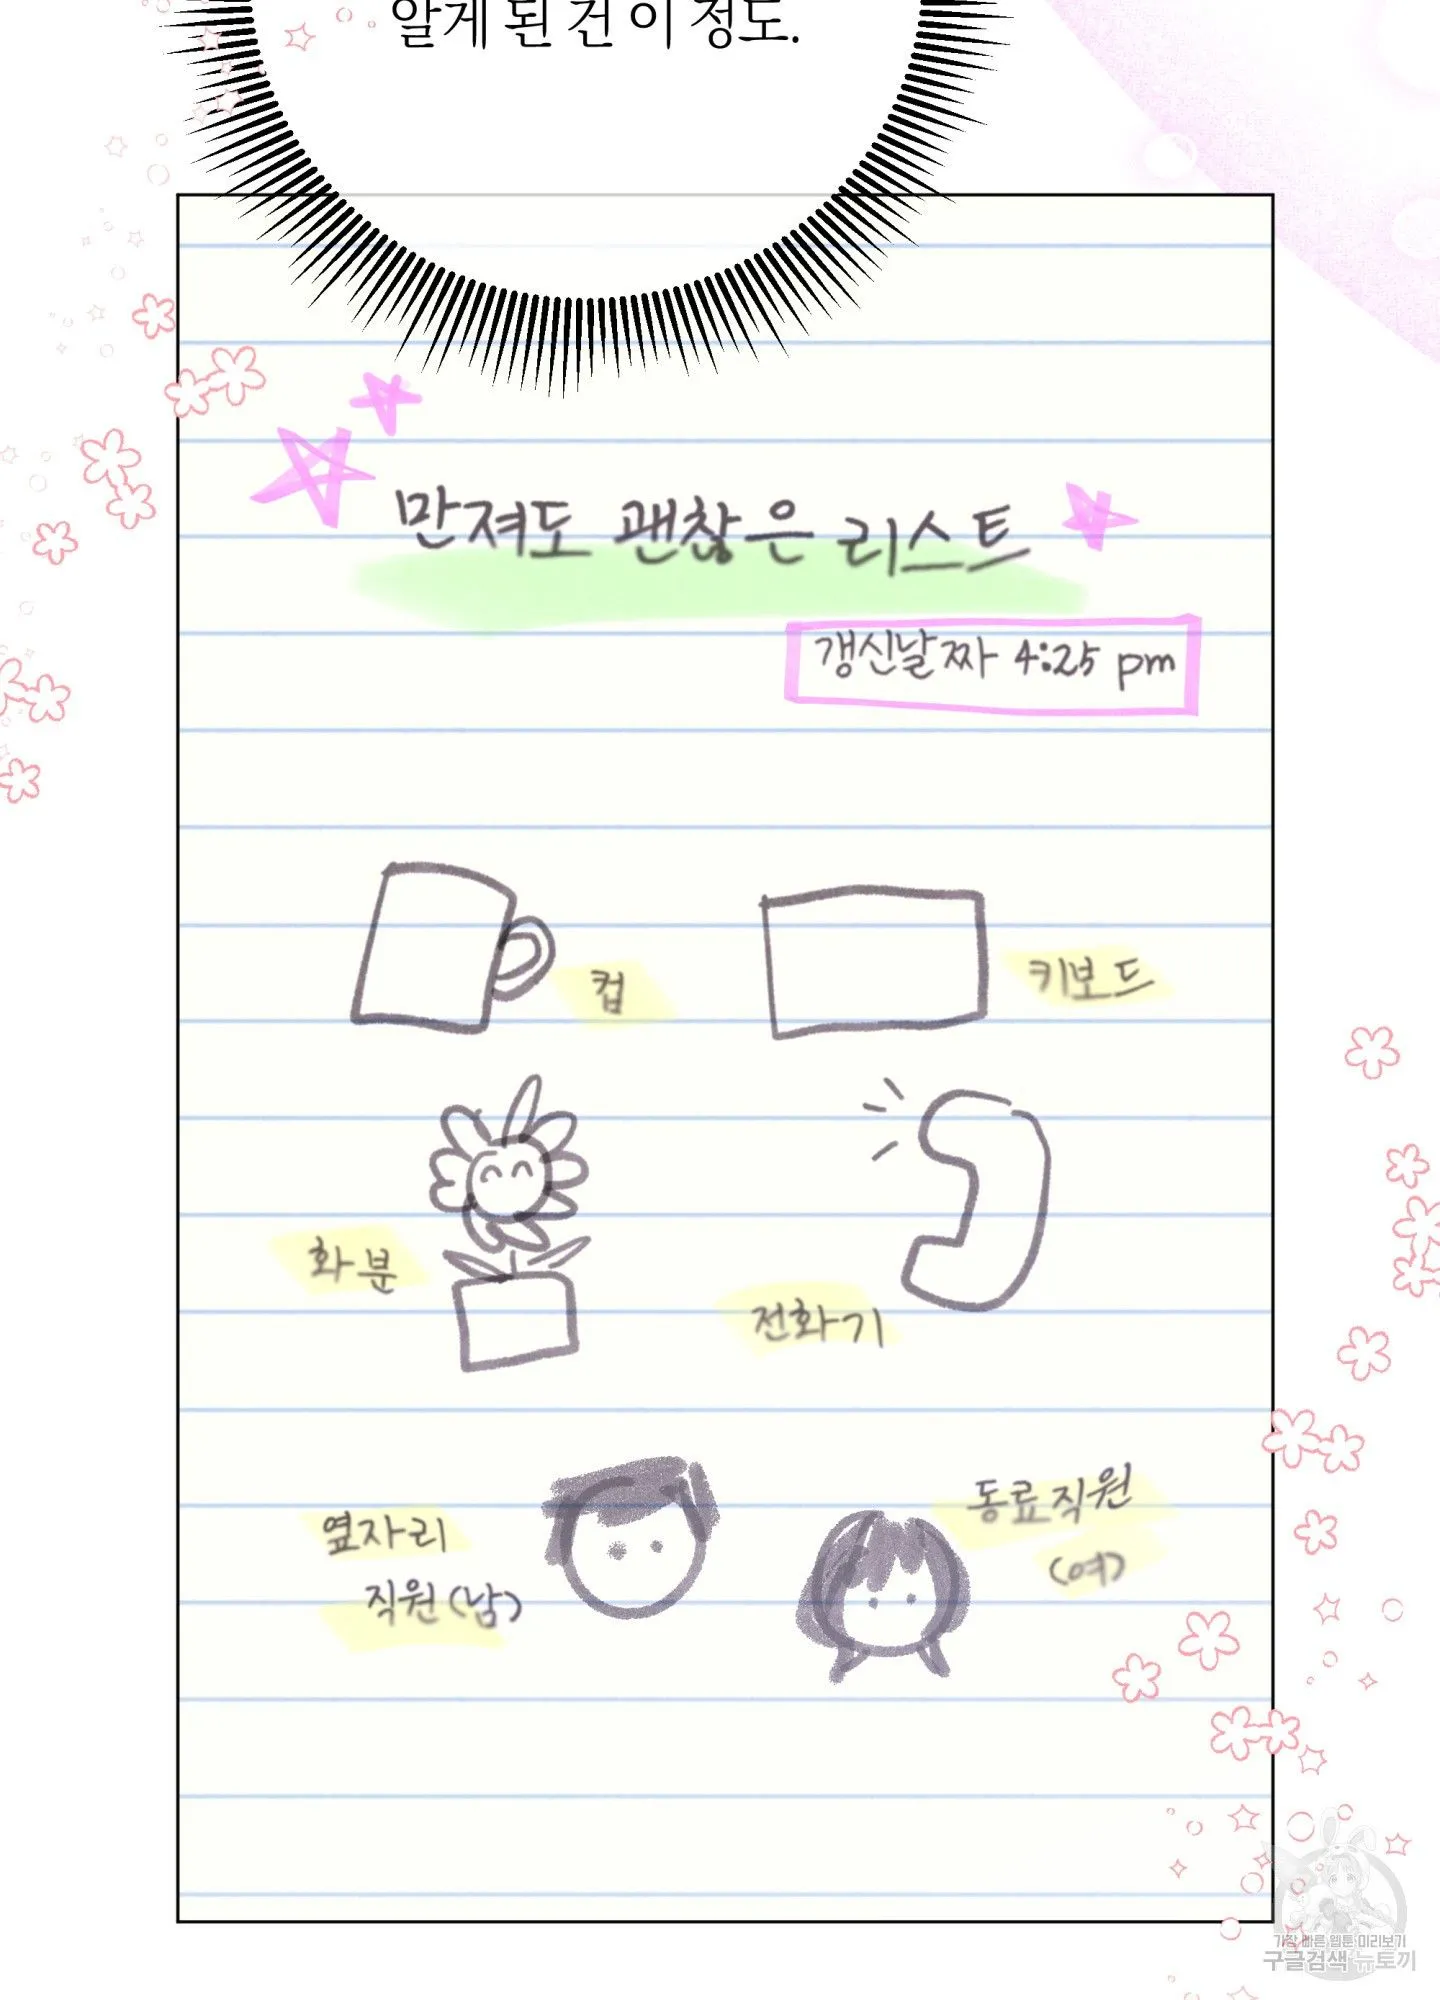 알게 된 건 이 정도.
만져도 괜찮은 리스트
갱신날짜 4:25 pm
컵
키보드
화분
전화기
옆자리
직원(남)
동료직원
(여)
가장 빠른 웹툰 미리보기
구글검색 뉴토끼